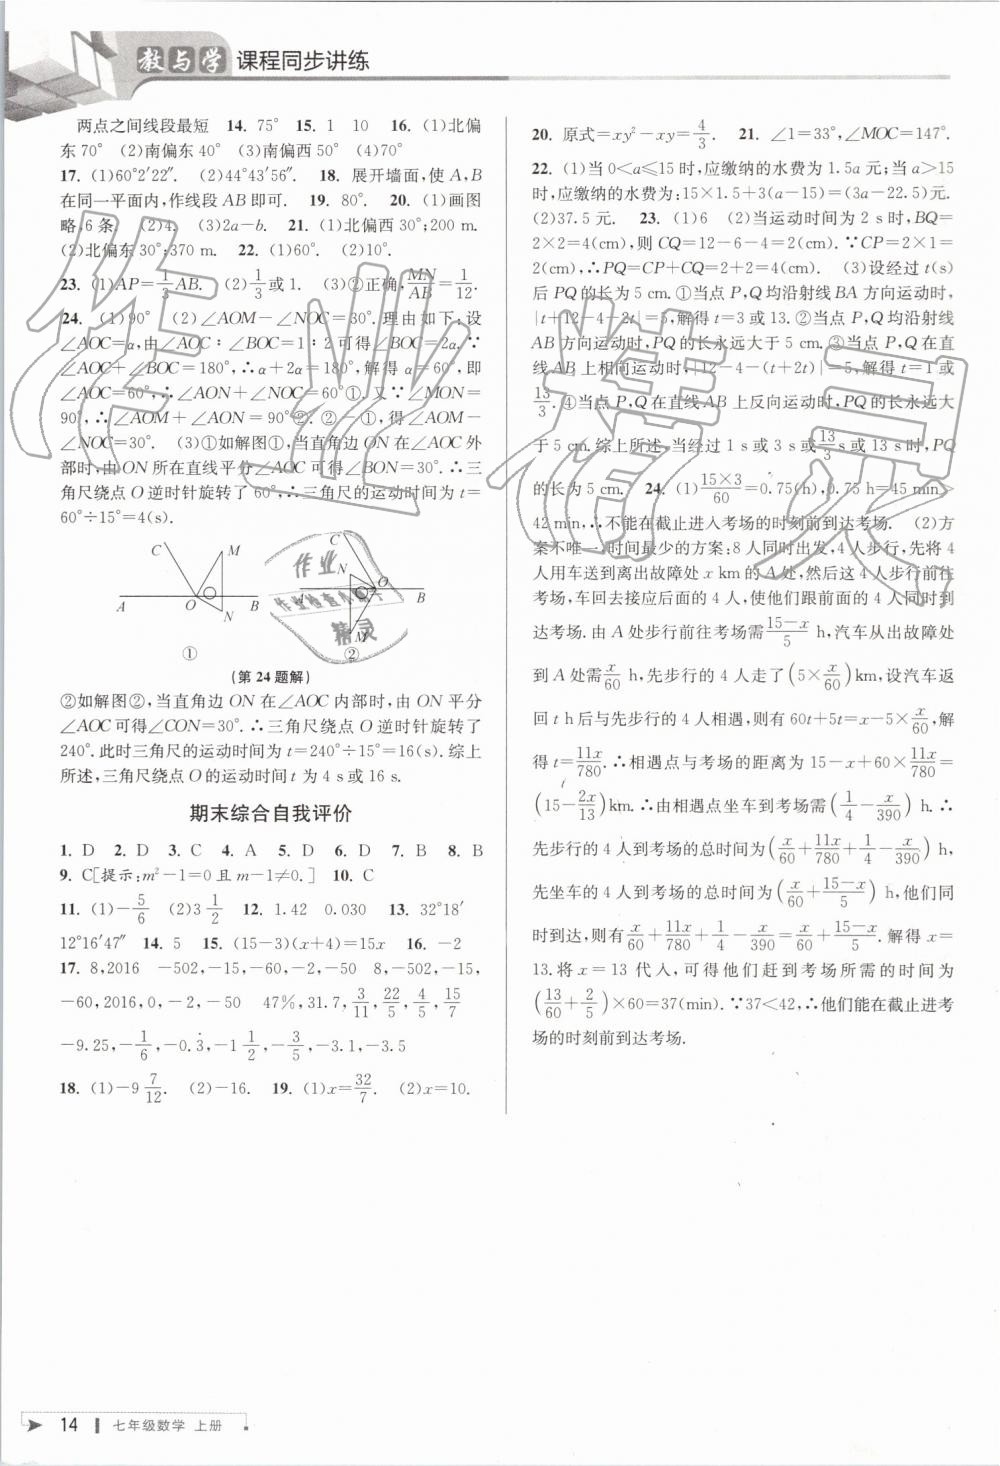 教与学 课程同步讲练
两点之间线段最短 14. 75° 15. 1 10 16. (1)北偏
东70° (2)南偏东40° (3)南偏西50° (4)70°
17. (1)60°2′22″. (2)44°43′56″. 18. 展开墙面,使A,B
在同一平面内,作线段AB即可. 19. 80°. 20. (1)画图
略,6条. (2)4. (3)2a-b. 21. (1)北偏西30°;200 m.
(2)北偏东30°;370 m. 22. (1)60°. (2)10°.
23. (1)AP=1/3 AB. (2)1/3或1. (3)②正确,MN/AB=1/12.
24. (1)90° (2)∠AOM-∠NOC=30°.理由如下:设
∠AOC=α,由∠AOC∶∠BOC=1∶2可得∠BOC=2α.∵
∠AOC+∠BOC=180°,∴α+2α=180°,解得α=60°,即
∠AOC=60°,∴∠AON+∠NOC=60°①.又∵∠MON=
90°,∴∠AOM+∠AON=90°②.②-①,得∠AOM-
∠NOC=30°. (3)①如解图①,当直角边ON在∠AOC外
部时,由ON所在直线平分∠AOC可得∠BON=30°.∴三
角尺绕点O逆时针旋转了60°,∴三角尺的运动时间为t=
60°÷15°=4(s).
C M A O N B
①
C N A O B M
②
(第24题解)
②如解图②,当直角边ON在∠AOC内部时,由ON平分
∠AOC可得∠CON=30°.∴三角尺绕点O逆时针旋转了
240°.此时三角尺的运动时间为t=240°÷15°=16(s).综上
所述,三角尺绕点O的运动时间t为4 s或16 s.
期末综合自我评价
1. D 2. D 3. C 4. A 5. D 6. D 7. B 8. B
9. C[提示:m²-1=0且m-1≠0.] 10. C
11. (1)-5/6 (2)3 1/2 12. 1.42 0.030 13. 32°18′
12°16′47″ 14. 5 15. (15-3)(x+4)=15x 16. -2
17. 8,2016 -502,-15,-60,-2,-50 8,-502,-15,
-60,2016,0,-2,-50 47%,31.7,3/11,22/5,4/5,15/7
-9.25,-1/6,-0.3̇,-1 1/2,-3/5,-3.1,-3.5
18. (1)-9 7/12. (2)-16. 19. (1)x=32/7. (2)x=10.
20. 原式=xy²-xy=4/3. 21. ∠1=33°,∠MOC=147°.
22. (1)当0<a≤15时,应缴纳的水费为1.5a元;当a>15
时,应缴纳的水费为:15×1.5+3(a-15)=(3a-22.5)元.
(2)37.5元. 23. (1)6 (2)当运动时间为2 s时,BQ=
2×2=4(cm),则CQ=12-6-4=2(cm).∵CP=2×1=
2(cm),∴PQ=CP+CQ=2+2=4(cm). (3)设经过t(s)
后PQ的长为5 cm.①当点P,Q均沿射线BA方向运动时,
|t+12-4-2t|=5,解得t=3或13.②当点P,Q均沿射线
AB方向运动时,PQ的长永远大于5 cm.③当点P,Q在直
线AB上相向运动时,|12-4-(t+2t)|=5,解得t=1或
13/3.④当点P,Q在直线AB上反向运动时,PQ的长永远大
于5 cm.综上所述,当经过1 s或3 s或13/3 s或13 s时,PQ
的长为5 cm. 24. (1)15×3/60=0.75(h),0.75 h=45 min>
42 min,∴不能在截止进入考场的时刻前到达考场. (2)方
案不唯一,时间最少的方案:8人同时出发,4人步行,先将4
人用车送到离出故障处x km的A处,然后这4人步行前往
考场,车回去接应后面的4人,使他们跟前面的4人同时到
达考场.由A处步行前往考场需15-x/5 h,汽车从出故障处
到A处需x/60 h,先步行的4人走了(5×x/60)km,设汽车返
回t h后与先步行的4人相遇,则有60t+5t=x-5×x/60,解
得t=11x/780.∴相遇点与考场的距离为15-x+60×11x/780=
(15-2x/13)km.∴由相遇点坐车到考场需(1/4-x/390)h.∴
先步行的4人到考场的总时间为(x/60+11x/780+1/4-x/390)h,
先坐车的4人到考场的总时间为(x/60+15-x/5)h,他们同
时到达,则有x/60+11x/780+1/4-x/390=x/60+15-x/5.解得x=
13.将x=13代入,可得他们赶到考场所需的时间为
(13/60+2/5)×60=37(min).∵37<42,∴他们能在截止进考
场的时刻前到达考场.
作业精灵
作业
作业检查小助手
精灵
14 七年级数学 上册